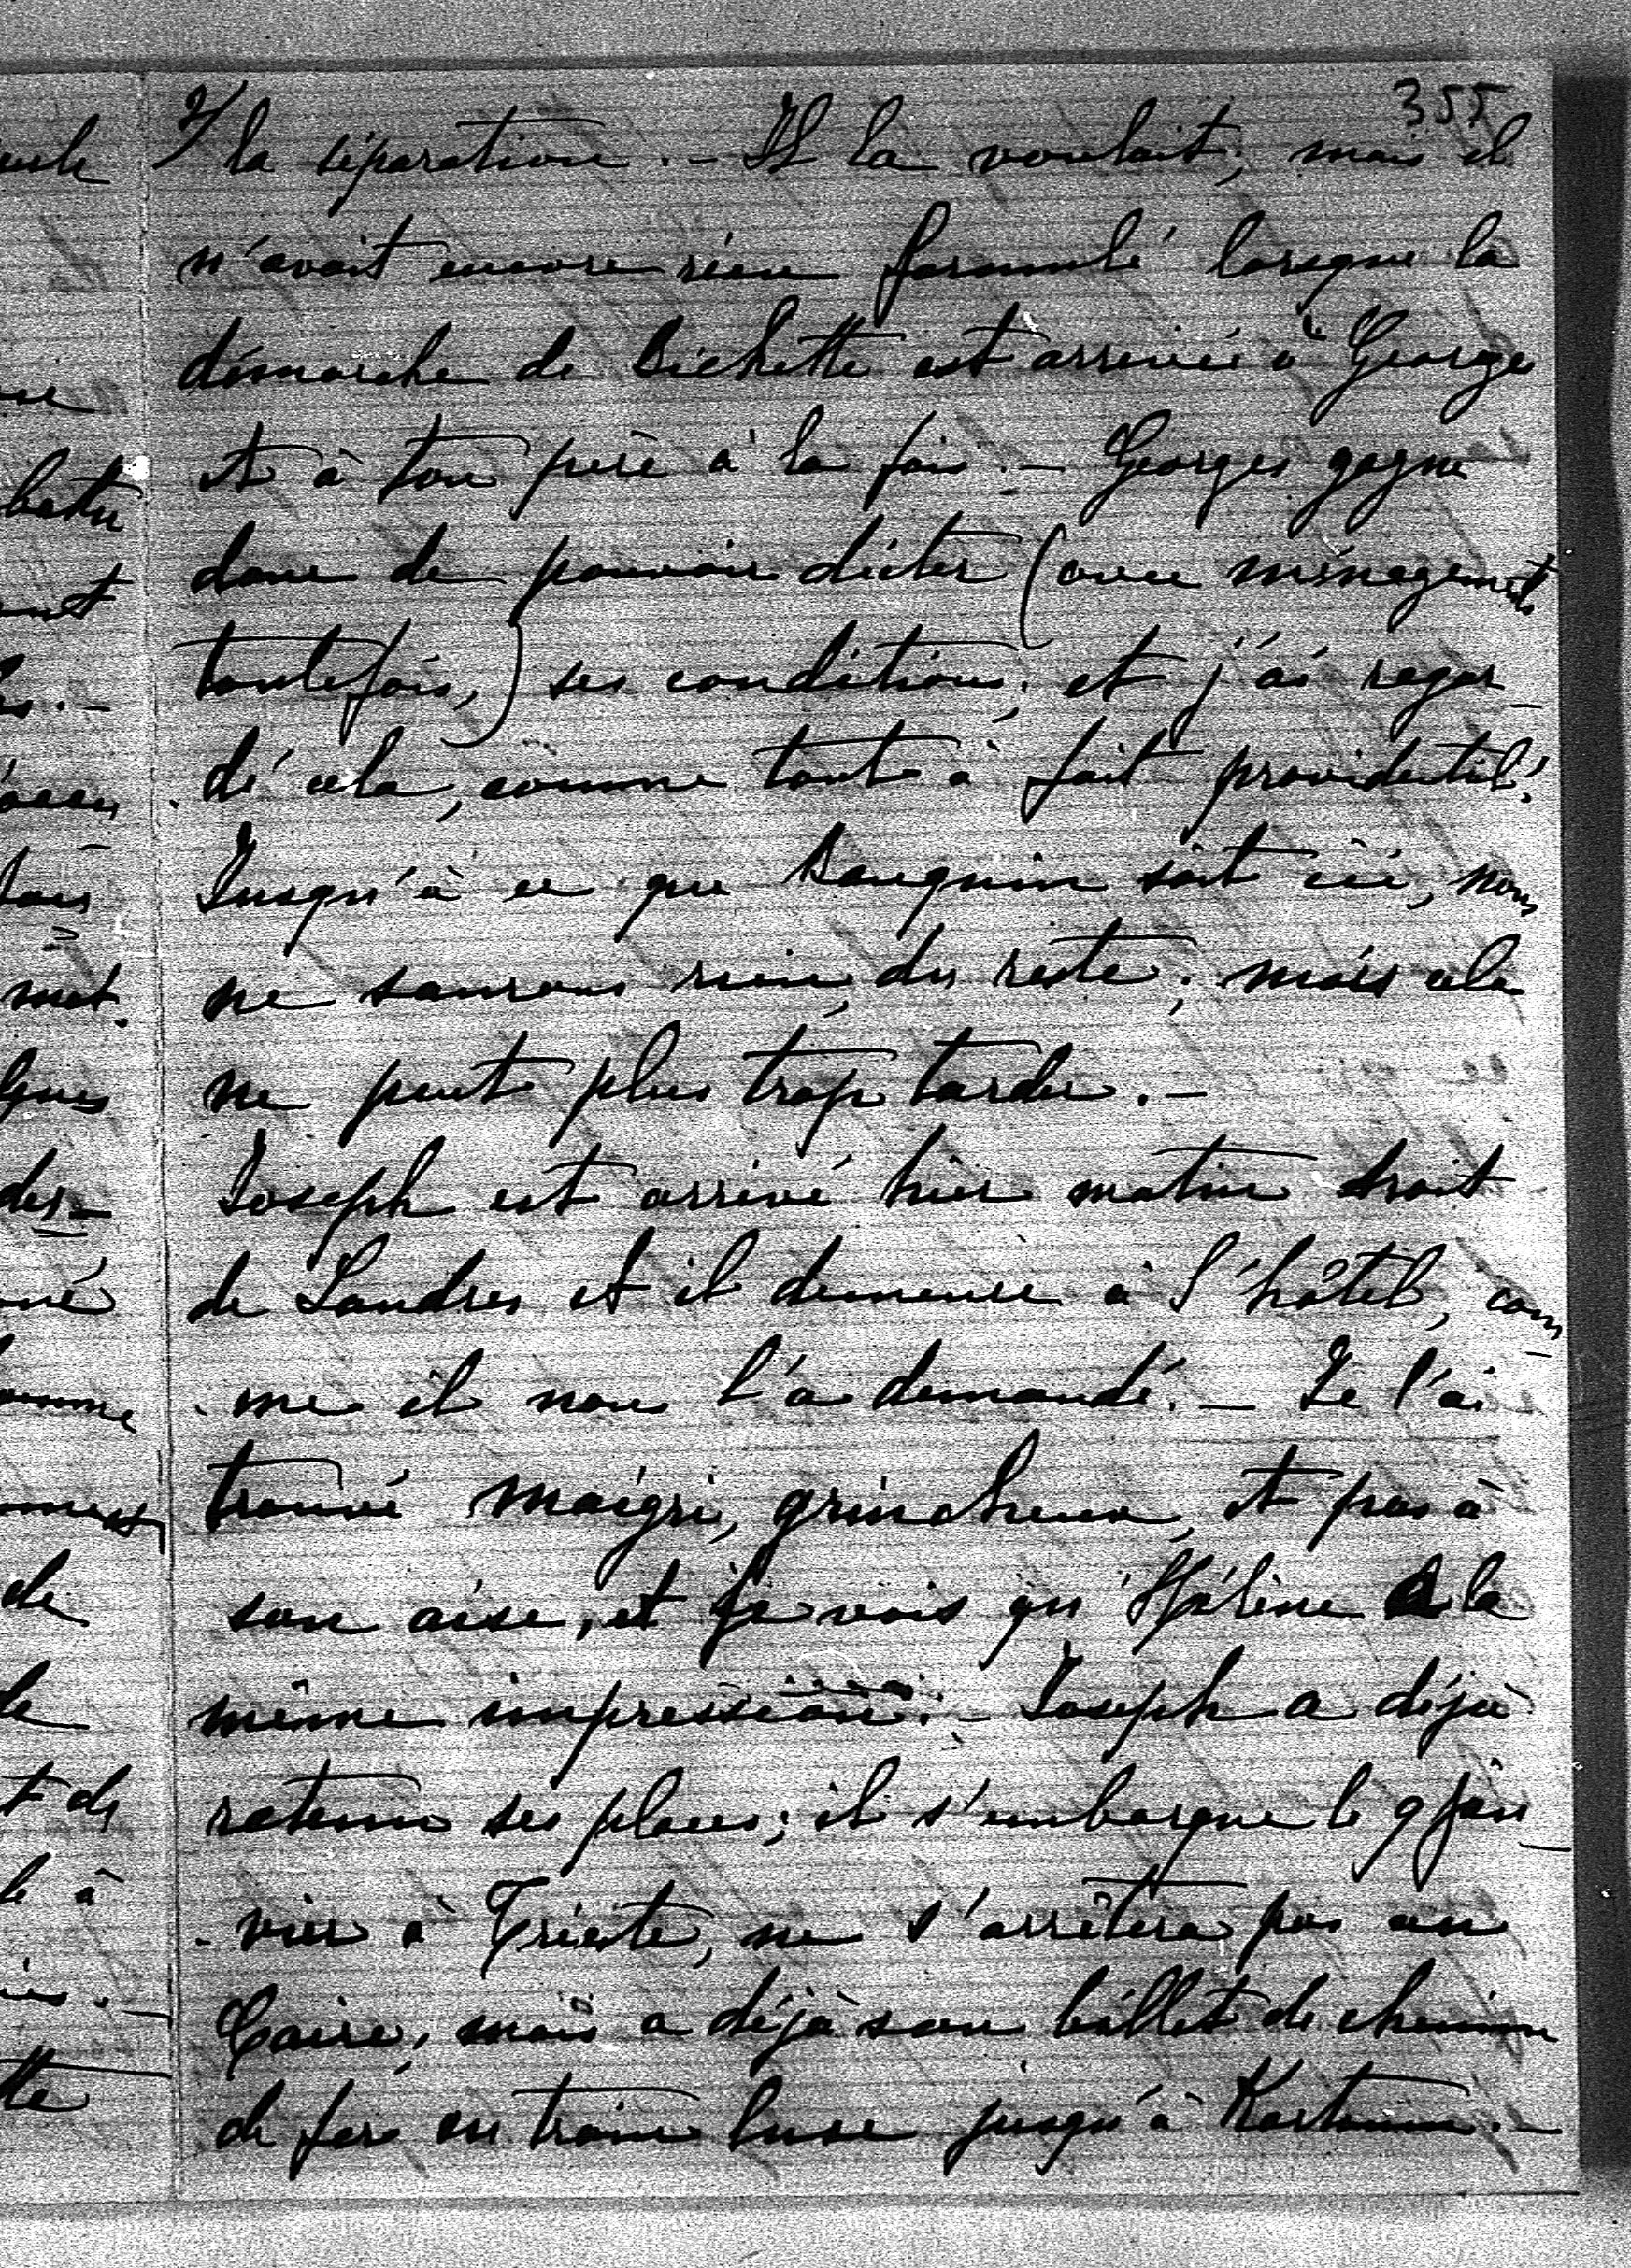 355
7/ la séparation. – Il la voulait, mais il
n'avait encore rien formulé lorsque la
démarche de Bichette est arrivée à Georges
et à ton père à la fois. – Georges gagne
donc de pouvoir dicter (avec ménagements
toutefois,) ses conditions, et j'ai regar-
dé cela, comme tout à fait providentiel!
Jusqu'à ce que Bauquin soit ici, nous
ne saurons rien, du reste; mais cela
ne peut plus trop tarder. –
Joseph est arrivé hier matin droit
de Londres et il demeure à l'hôtel, com-
me il nous l'a demandé. – Je l'ai
trouvé maigri, grincheux, et pas à
son aise, et je vois qu'Hélène a la
même impression. – Joseph a déjà
retenu ses places; il s'embarque le 9 jan-
vier à Trieste, ne s'arrêtera pas au
Caire, mais a déjà son billet de chemin
de fer en train luxe jusqu'à Kartoum. –